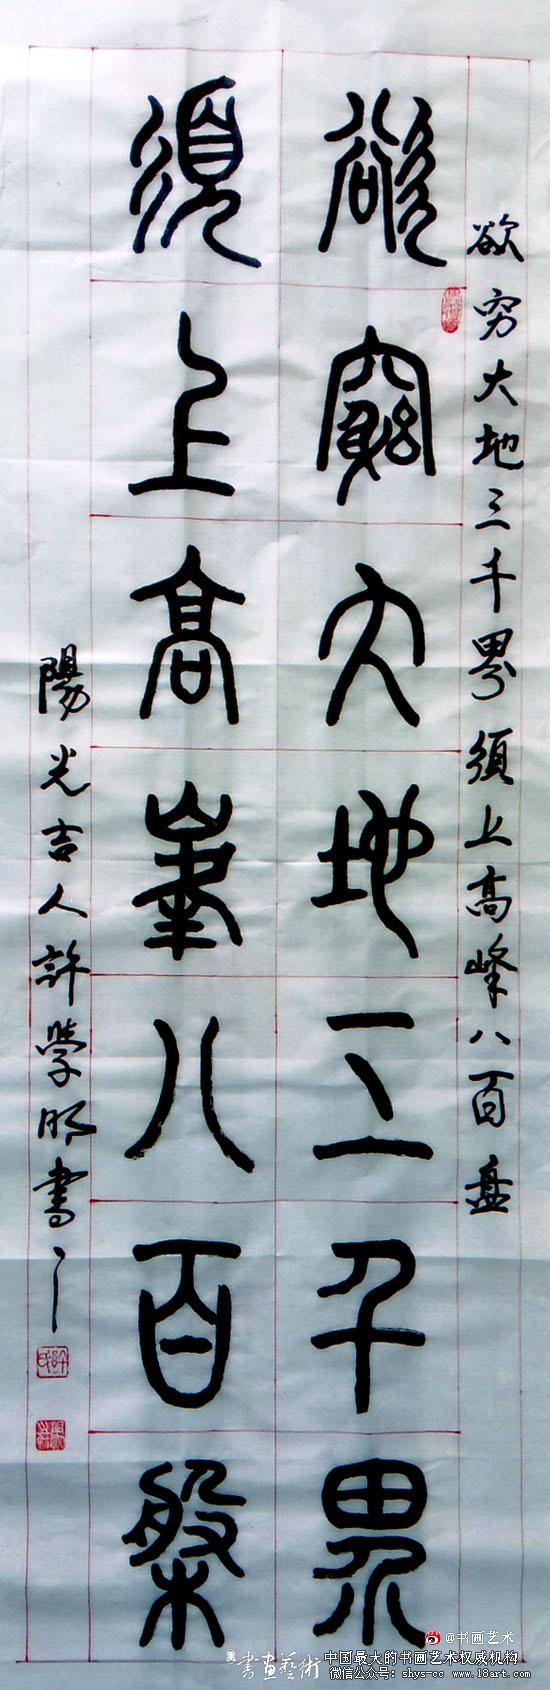 欲穷大地三千界须上高峰八百盘
欲窮大地三千界
須上高峯八百槃
陽光吉人許學明書
@书画艺术
書畫藝術
中国最大的书画艺术权威机构
微信公众号：shys-cc www.18art.com